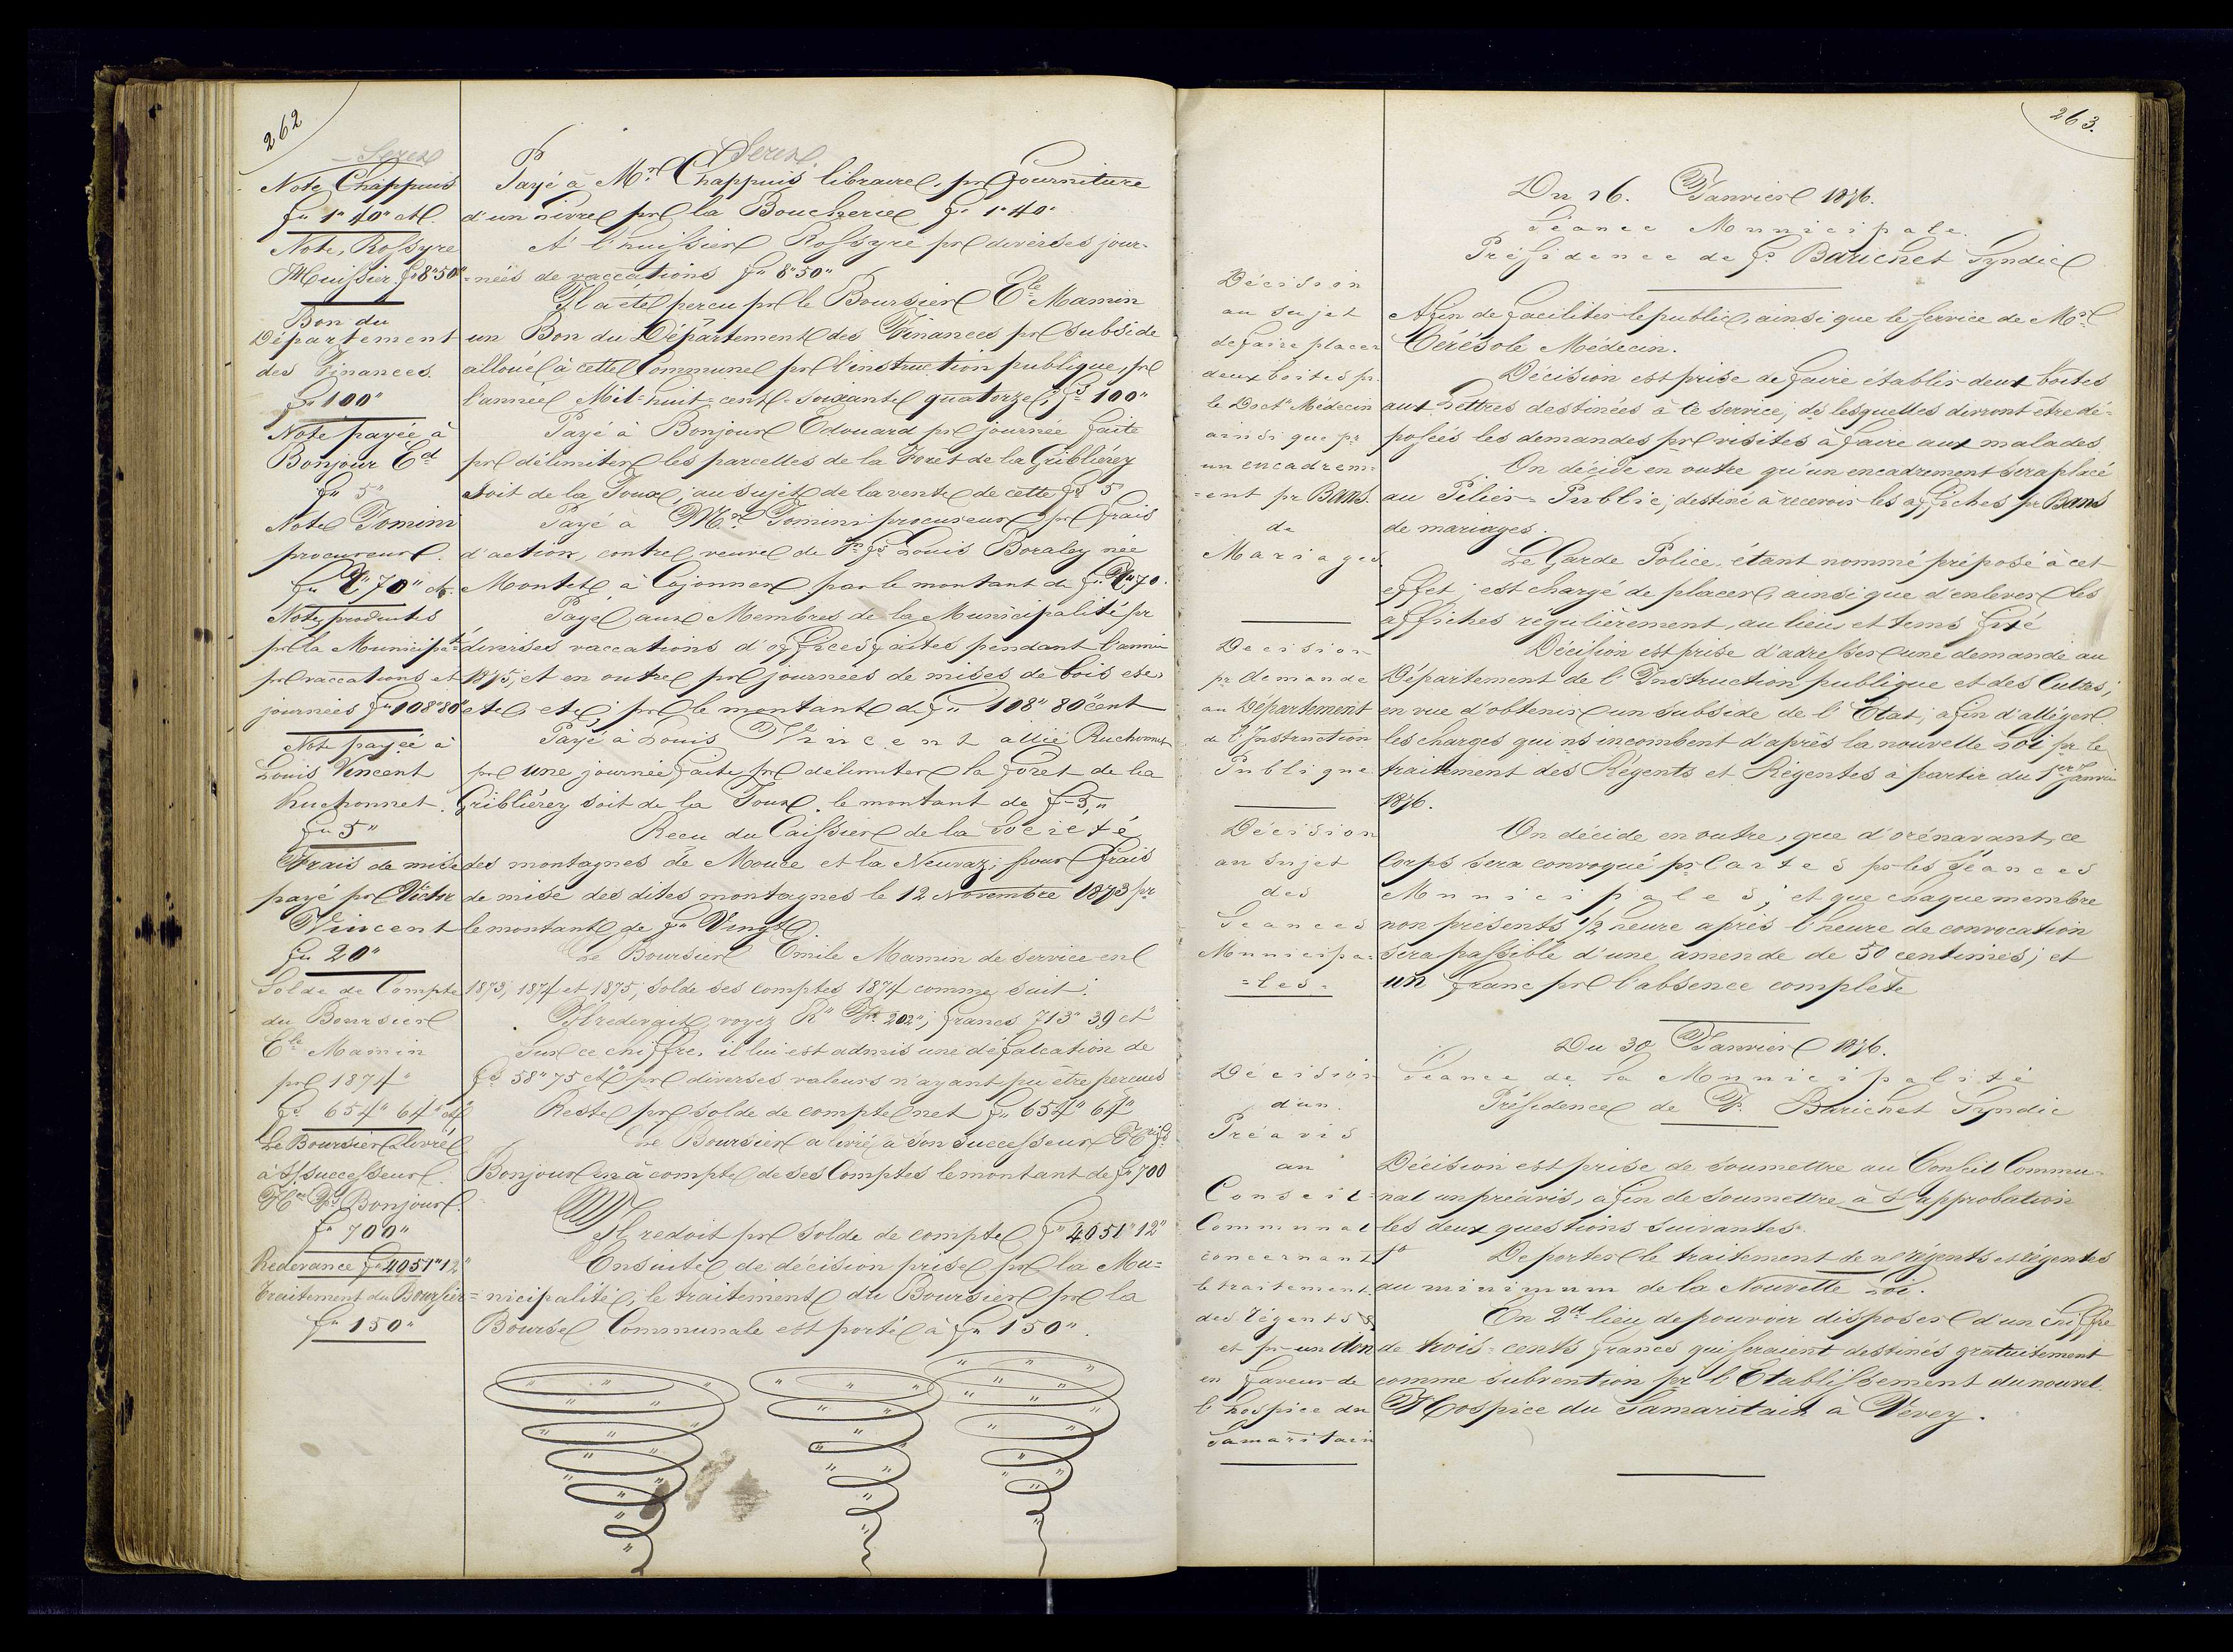 262
Serex
Note Chappuis
fs 1"40" cts
Note, Rossyre
Huissier fs 8"50"
Bon du
Département
des Finances.
fs 100"
Note payée à
Bonjour Ed
fs 5"
Note Tomini
procureur.
70" cts.
Note, produites
pr la Municipté
pr vaccations et
journées fs 108"80"
Note payée à
Louis Vincent
Ruchonnet.
fs 5"
Frais de mise
payé pr Victor
Vincent
fs 20"
Solde de Compte
du Boursier
Ele Mamin
pr 1874"
fs 654"64" cts
Le Boursier a livré
à s/ successeur
Hri Fs Bonjour.
fs 700"
Redevance fs 4051"12"
Traitement du Boursier
fs 150"
Serex
Payé à Mr Chappuis libraire, pr fourniture
d'un livre pr la Boucherie fs 1"40"
A l'huissier Rossyre pr diverses jour-
=nées de vaccations fs 8"50"
Il a été percu pr le Boursier Ele Mamin
un Bon du Département des Finances pr subside
alloué à cette Commune pr l'instruction publique, pr
l'année Mil=huit=cent=soixante quatorze; fs 100"
Payé à Bonjour Edouard pr journée faite
pr délimiter les parcelles de la Forêt de la Griblièrey
soit de la Joux, au sujet de la vente de cette fs 5"
Payé à Mr Tomini procureur pr frais
d'action, contre, veuve de Fs Louis Boraley née
Montet à Cojonnex par le montant de 70.
Payé aux Membres de la Municipalité pr
diverses vaccations d'offices faites pendant l'année
1875, et en outre pr journées de mises de bois etc,
etc, etc; pr le montant de fs 108"80"cent
Payé à Louis Vincent allié Ruchonnet
pr une journée faite pr délimiter la forêt de la
Griblièrey soit de la Joux. le montant de fs 5,"
Recu du Caissier de la Société
des montagnes de Mouce et la Neuvaz; pour frais
de mise des dites montagnes le 12 Novembre 1873 pr
le montant de fs Vingt
Le Boursier Emile Mamin de service en
1873, 1874 et 1875, solde ses comptes 1874 comme suit:
Il redevait, voyez 202"; francs 713" 39 cts
Sur ce chiffre, il lui est admis une défalcation de
fs 58"75 cts pr diverses valeurs n'ayant pu être percues
Reste pr solde de compte net fs 654"64"
Le Boursier a livré à son successeur Hri Fs
Bonjour en à compte de ses Comptes le montant de fs 700
Il redoit pr solde de compte fs 4051"12"
Ensuite de décision prise pr la Mu=
=nicipalité, le traitement du Boursier pr la
Bourse Communale est porté à fs 150".
263.
Décision
au sujet
de faire placer
deux boites pr
le Doctr Médecin
ainsi que pr
un encadrem=
=ent pr Bans
de
Mariages
Decision
pr demande
au Département
de l'Instruction
Publique
Décision
au sujet
des
Seances
Municipa=
=les=
Décision
d'un
Préavis
au
Conseil
Communal
concernant
le traitement
des régents
et pr un don
en faveur de
l'hospice du
Samaritain
Du 16. Janvier 1876.
Séance Municipale.
Présidence de Fs Barichet Syndic
Afin de faciliter le public, ainsi que le service de Mr
Cérésole Médecin.
Décision est prise de faire établir deux boites
aux Lettres destinées à ce service; ds lesquelles devront être dé=
posées les demandes pr visites à faire aux malades
On décide en outre qu'un encadrement sera placé
au Pilier=Public, destiné à recevoir les affiches pr Bans
de mariages.
Le Garde Police, étant nommé préposé à cet
effet; est chargé de placer, ainsi que d'enlever les
affiches régulièrement, au lieu et tems fixé
Décision est prise d'adresser une demande au
Département de l'Instruction publique et des Cultes;
en vue d'obtenir un subside de l'Etat, afin d'alléger
les charges qui ns incombent d'après la nouvelle Loi pr le
traitement des Régents et Régentes à partir du 1er Janvier
1876.
On décide en outre, que d'orénavant, ce
Corps sera convoqué pr Cartes pr les Séances
Municipales; et que chaque membre
non présents 1/2 heure après l'heure de convocation
sera passible d'une amende de 50 centimes; et
un franc pr l'absence complète
Du 30 Janvier 1876.
Séance de la Municipalité
Présidence de F. Barichet Syndic
Décision est prise de soumettre au Conseil Commu-
nal un préavis, afin de soumettre à s/ approbation
les deux questions suivantes:
1o De porter le traitement de ns régents et régentes
au minimum de la Nouvelle Loi.
En 2d lieu de pouvoir disposer d'un chiffre
de trois=cents francs qui seraient destinés gratuitement
comme subvention pr l'Etablissement du nouvel
Hospice du Samaritain à Vevey.